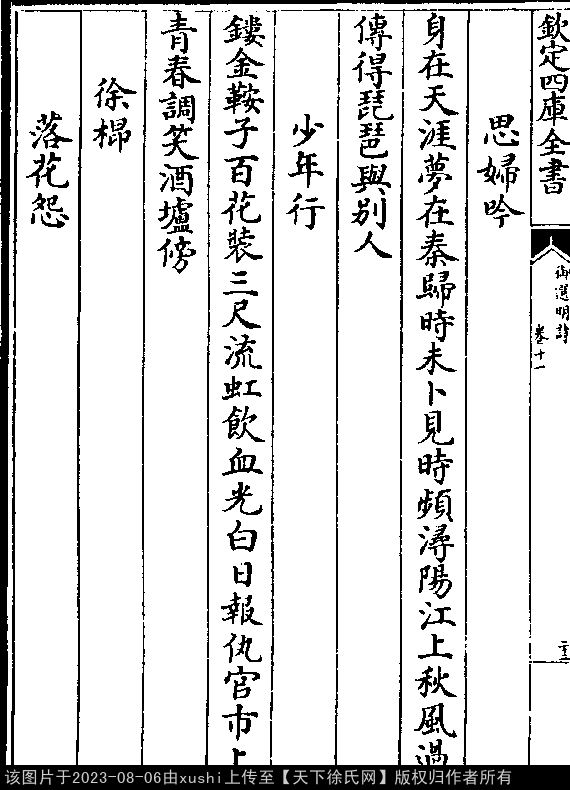 欽定四庫全書
御選明詩
卷十一
思婦吟
身在天涯夢在秦歸時未卜見時頻潯陽江上秋風過
傳得琵琶與别人
少年行
鏤金鞍子百花裝三尺流虹飲血光白日報仇宫市上
青春調笑酒壚傍
徐㮰
落花怨
该图片于2023-08-06由xushi上传至【天下徐氏网】版权归作者所有